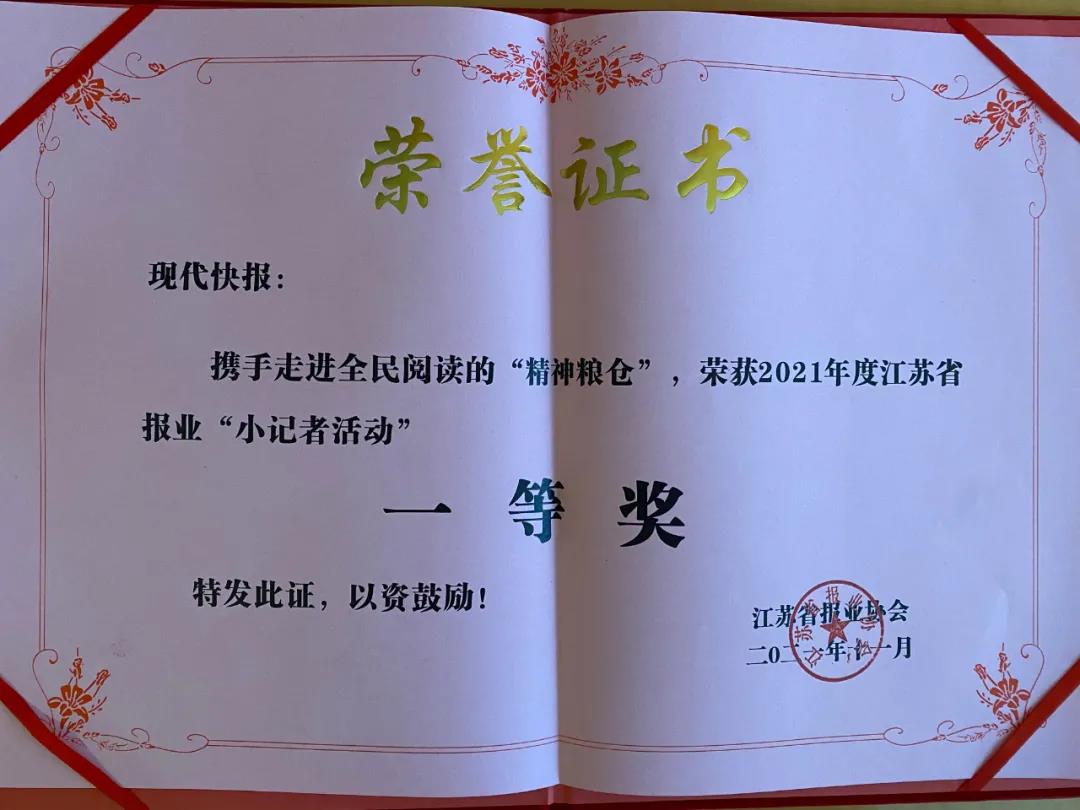 荣誉证书
现代快报：
携手走进全民阅读的“精神粮仓”，荣获2021年度江苏省
报业“小记者活动”
一等奖
特发此证，以资鼓励！
江苏省报业协会
二〇二一年十一月